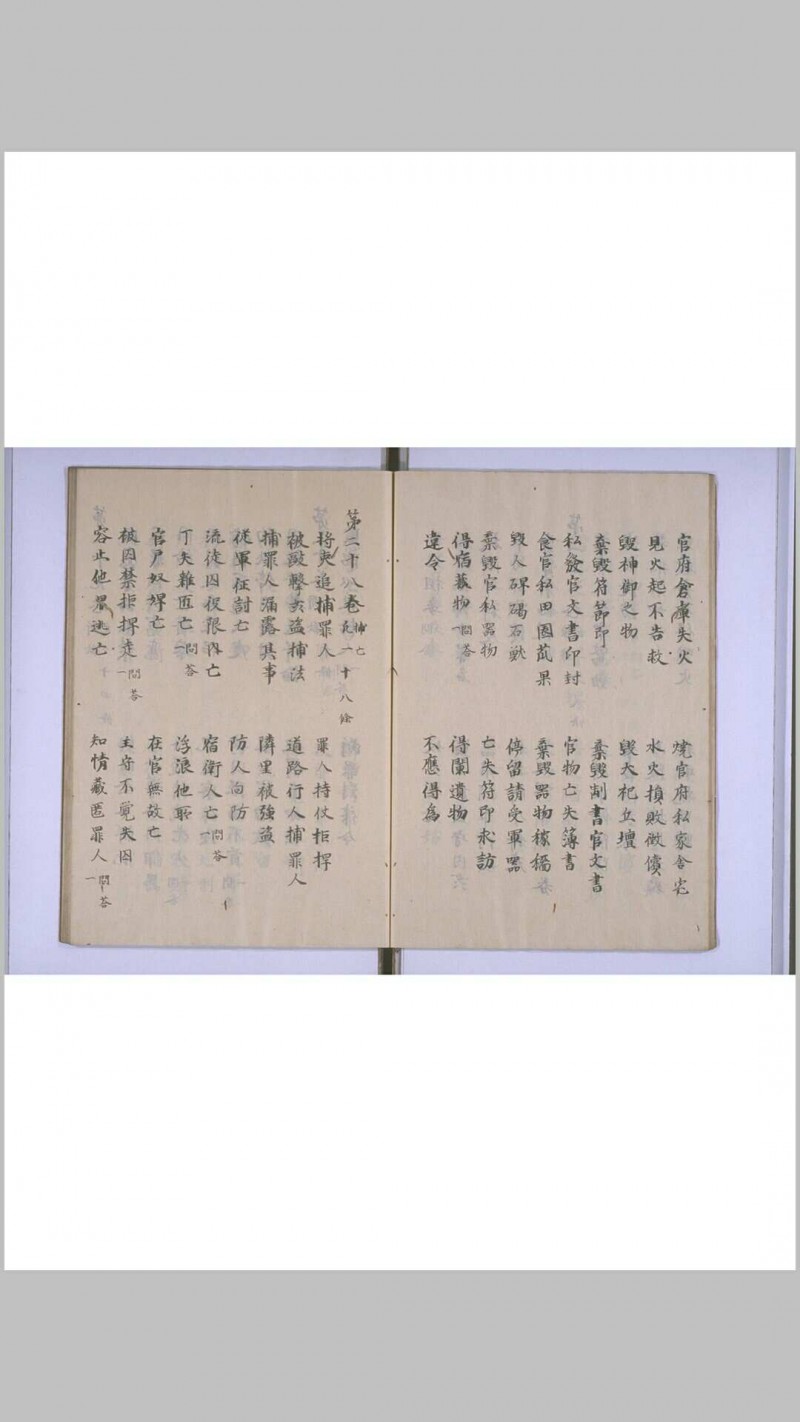 官府倉庫失火　燒官府私家舍宅
見火起不告救　水火損敗做償
毀神御之物　毀大祀丘壇
棄毀符節印　棄毀制書官文書
私發官文書印封　官物亡失簿書
食官私田園苽果　棄毀器物稼穡
毀人碑碣石獸　停留請受軍器
棄毀官私器物　亡失符印求訪
得宿藏物一問答　得闌遺物
違令　不應得為
第二十八卷捕亡凡一十八條
將吏追捕罪人　罪人持仗拒捍
被毆擊姦盜捕法　道路行人捕罪人
捕罪人漏露其事　隣里被強盜
從軍征討亡　防人向防
流徒囚役限內亡　宿衛人亡一問答
丁夫雜匠亡一問答　浮浪他所
官戶奴婢亡　在官無故亡
被囚禁拒捍走一問答　主守不覺失囚
容止他界逃亡　知情藏匿罪人一問答